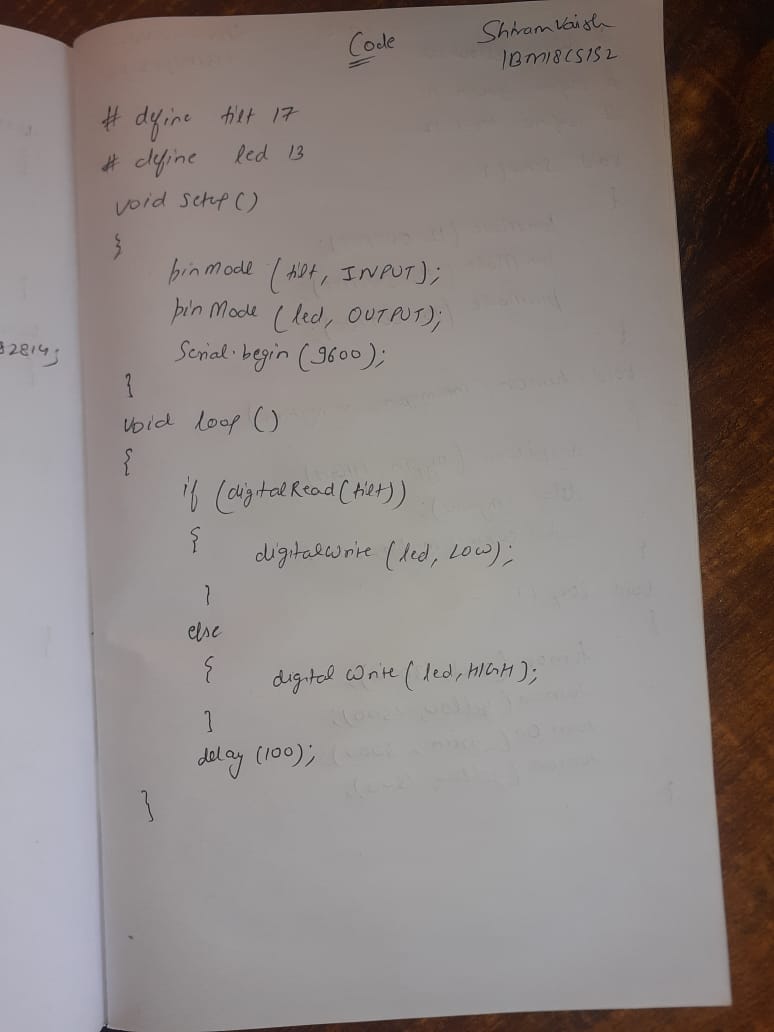 Code
Shivam Vaish
1BM18CS152
# define tilt 17
# define led 13
void setup()
}
pinmode (tilt, INPUT);
pinMode (led, OUTPUT);
Serial.begin (9600);
}
void loop ()
{
if (digitalRead(tilt))
{
digitalwrite (led, LOW);
}
else
{ digital write (led, HIGH);
}
delay (100);
}
2814;